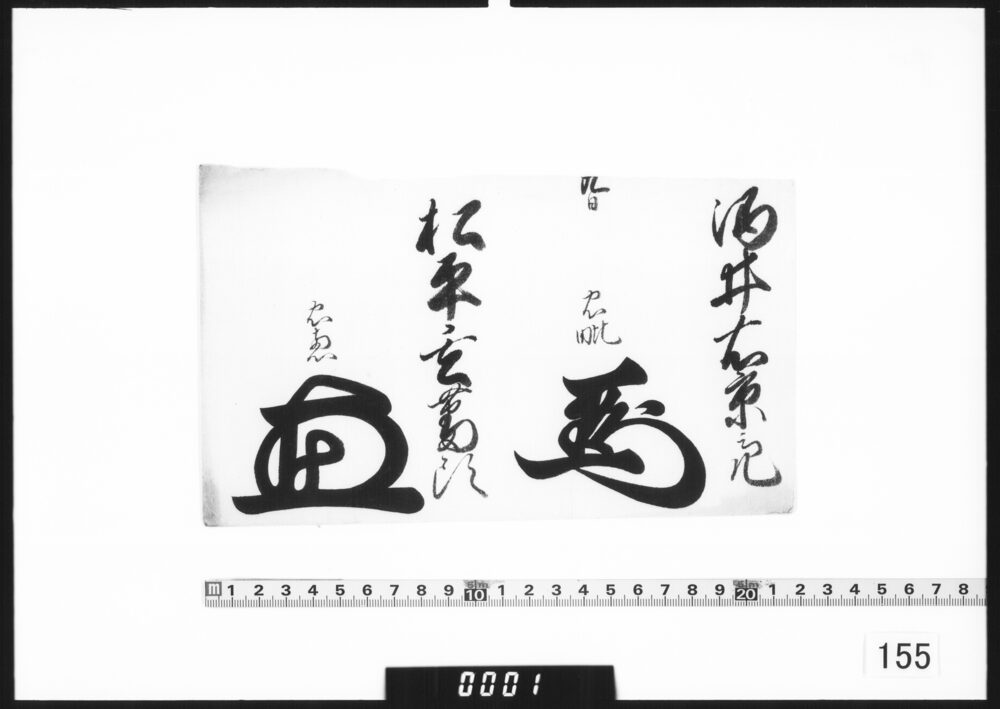 酒井右京亮
九日
忠毗
松平玄蕃頭
忠恵
m 1 2 3 4 5 6 7 8 9 10 1 2 3 4 5 6 7 8 9 20 1 2 3 4 5 6 7 8
155
0001